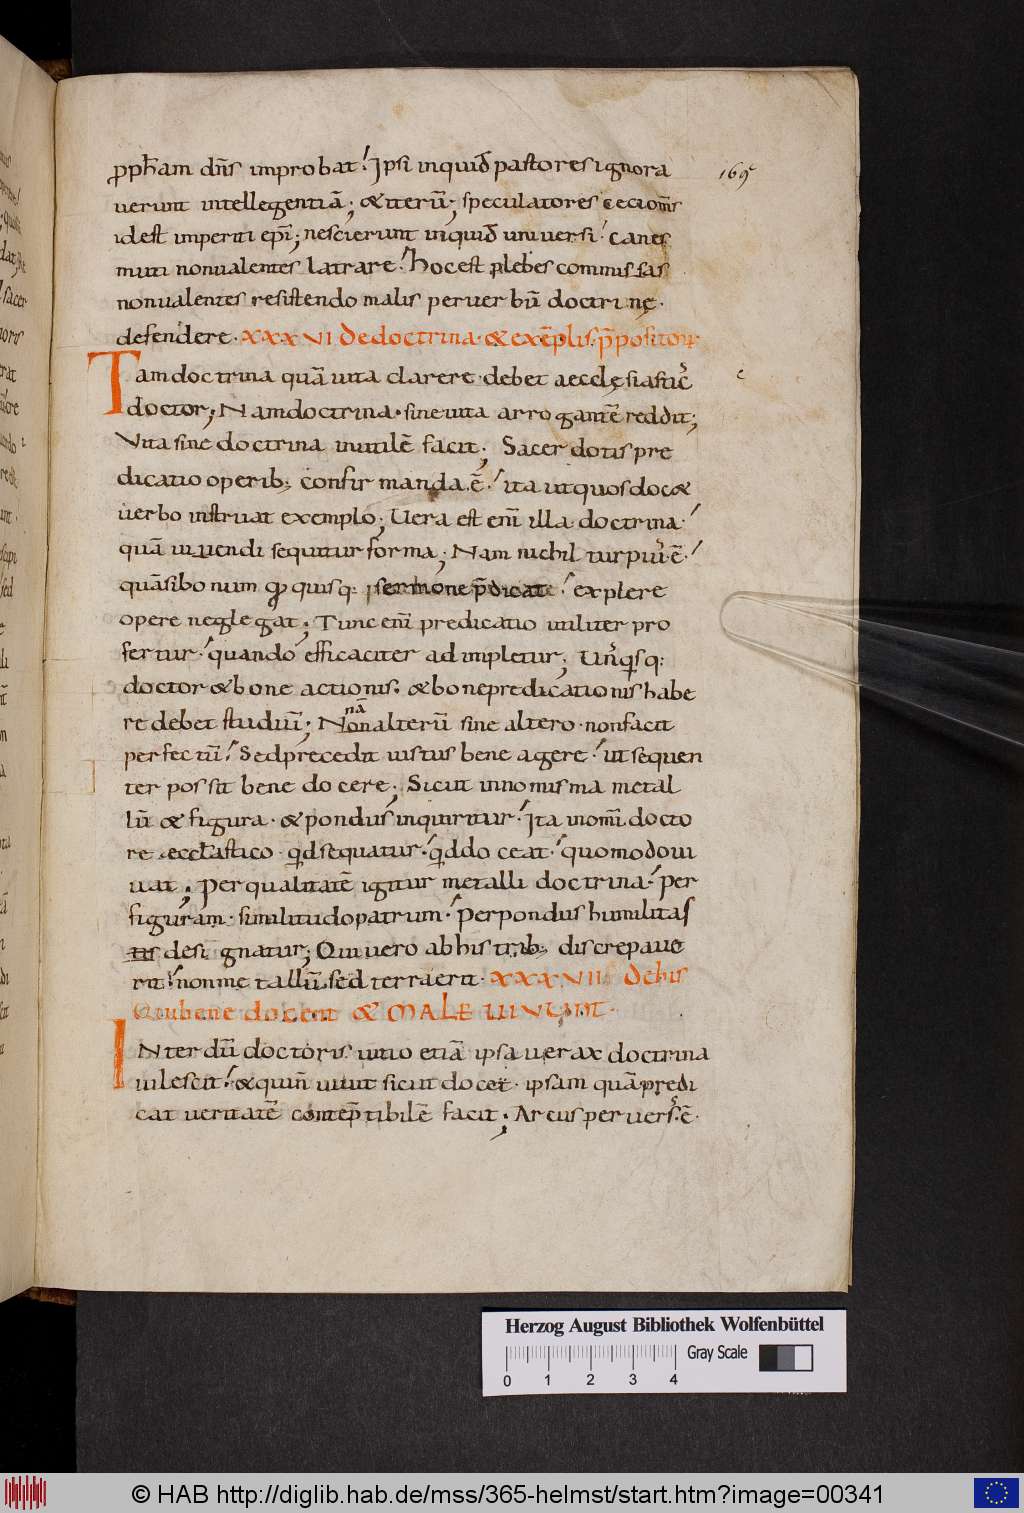 ꝓph̄am dn̄s improbat; Ipsi inquid pastores ignora
uerunt intellegentiā; & iterū; speculatores cecioms̄
idest imperiti ep̄i; nescierunt inquid uniuersi; canes
muti non ualentes latrare; hoc est plebes commissas
non ualentes resistendo malis per uerbū doctrinę·
defendere· XXXVI De doctrina· & exēplis· p̄positorꝝ
Tam doctrina quā uita clarere· debet aecclęsiastic᾿
doctor; Nam doctrina· sine uita arrogantē reddit;
Vita sine doctrina inutilē facit; Sacerdotis pre
dicatio operib; confirmanda ē; ita ut quos doc&
uerbo instruat exemplo; Uera est eni᷑ illa doctrina·
quā uiuendi sequitur forma; Nam nichil turpiu᾿ ē·
quā si bonum qđ quisq: sermone p̄dicat explere
opere neglegat; Tunc eni᷑ predicatio utiliter pro
fertur· quando efficaciter adimpletur; Un᾿qisq:
doctor & bone actionis· & bone predicationis habe
re debet studiū; Nā
Non alterū sine altero· non facit
perfectū; Sed precedit iustus bene agere; ut sequen
ter possit bene docere; Sicut in nomisma metal
lū & figura· & pondus inquiritur; Ita in omi᷑ docto
re eccl̄astico qid sequatur· qid doceat; quomodo ui
uat; Per qualitatē igitur metalli doctrina; per
figuram· similitudo patrum· per pondus humilitas
tis designatur; Qui uero ab his trib; discrepaue
rit; non metallū sed terra erit· XXXVII De his
Qui bene docent & MALE UIVUNT·
Interdū doctoris uitio etiā ipsa uerax doctrina
uilescit; & qui n̄ uiuit sicut docet· ipsam quā predi
cat ueritatē contēptibilē facit; Arcus peruers᾿ ē·
169
c
Herzog August Bibliothek Wolfenbüttel
Gray Scale
0 1 2 3 4
© HAB http://diglib.hab.de/mss/365-helmst/start.htm?image=00341